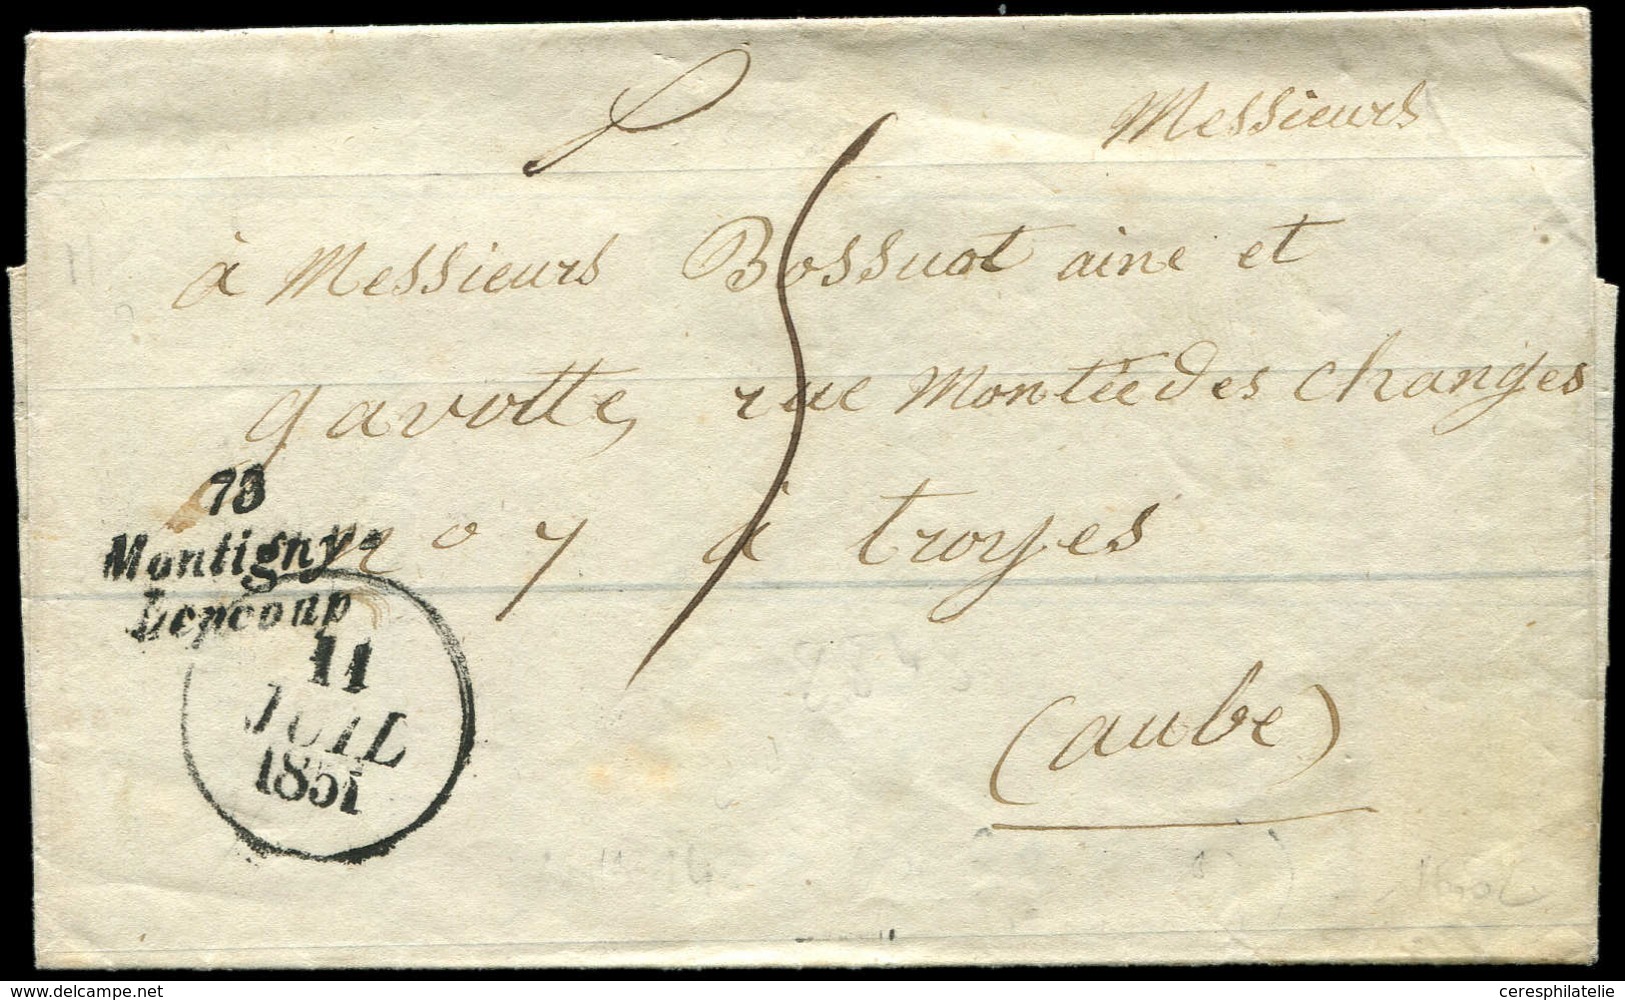 Messieurs
5
à Messieurs Bossuot aine et
gavotte, rue Montée des changes
no 7 à troyes
(aube)
73
Montigny-
Lencoup
11
JUIL
1851
delcampe.net
ceresphilatelie